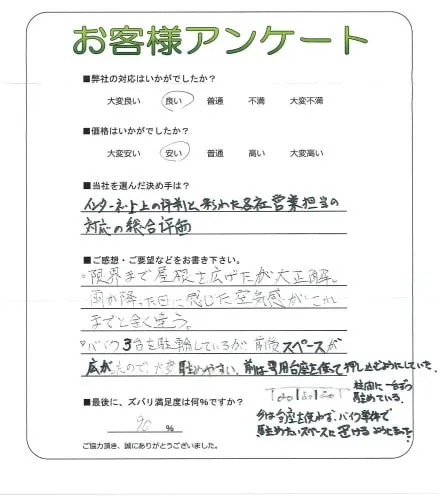 お客様アンケート
■弊社の対応はいかがでしたか?
大変良い 良い 普通 不満 大変不満
■価格はいかがでしたか?
大変安い 安い 普通 高い 大変高い
■当社を選んだ決め手は?
インターネット上の評判と来られた各社営業担当の
対応の総合評価
■ご感想・ご要望などをお書き下さい。
・限界まで屋根を広げたが大正解。
雨が降った日に感じた空気感がこれ
までと全く違う。
・バイク3台を駐輪しているが前後スペースが
広がったので、大変駐めやすい。前は専用台座を使って押し込むようにしていた。
柱間に一台づつ
駐めている。
今は台座を使わず、バイク単体で
駐めたいスペースに置けるようになった
■最後に、ズバリ満足度は何%ですか?
90 %
ご協力頂き、誠にありがとうございました。